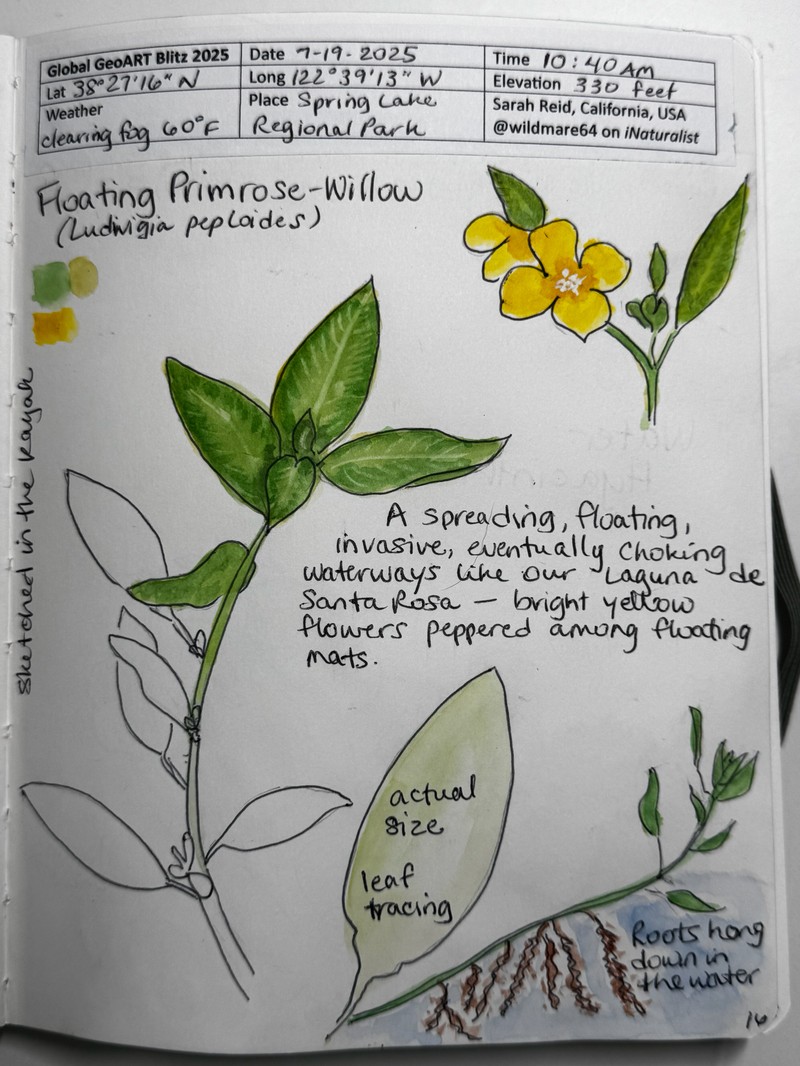 Global GeoART Blitz 2025
Date 7-19-2025
Time 10:40 AM
Lat 38°27'16" N
Long 122°39'13" W
Elevation 330 feet
Weather
clearing fog 60°F
Place Spring Lake
Regional Park
Sarah Reid, California, USA
@wildmare64 on iNaturalist
Floating Primrose-Willow
(Ludwigia peploides)
Sketched in the kayak
A spreading, floating,
invasive, eventually choking
waterways like our Laguna de
Santa Rosa — bright yellow
flowers peppered among floating
mats.
actual
size
leaf
tracing
Roots hang
down in
the water
16